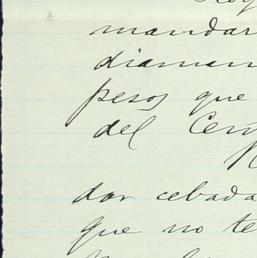 mandar
diaman
pesos que
del Cen
dar cebada
que no te